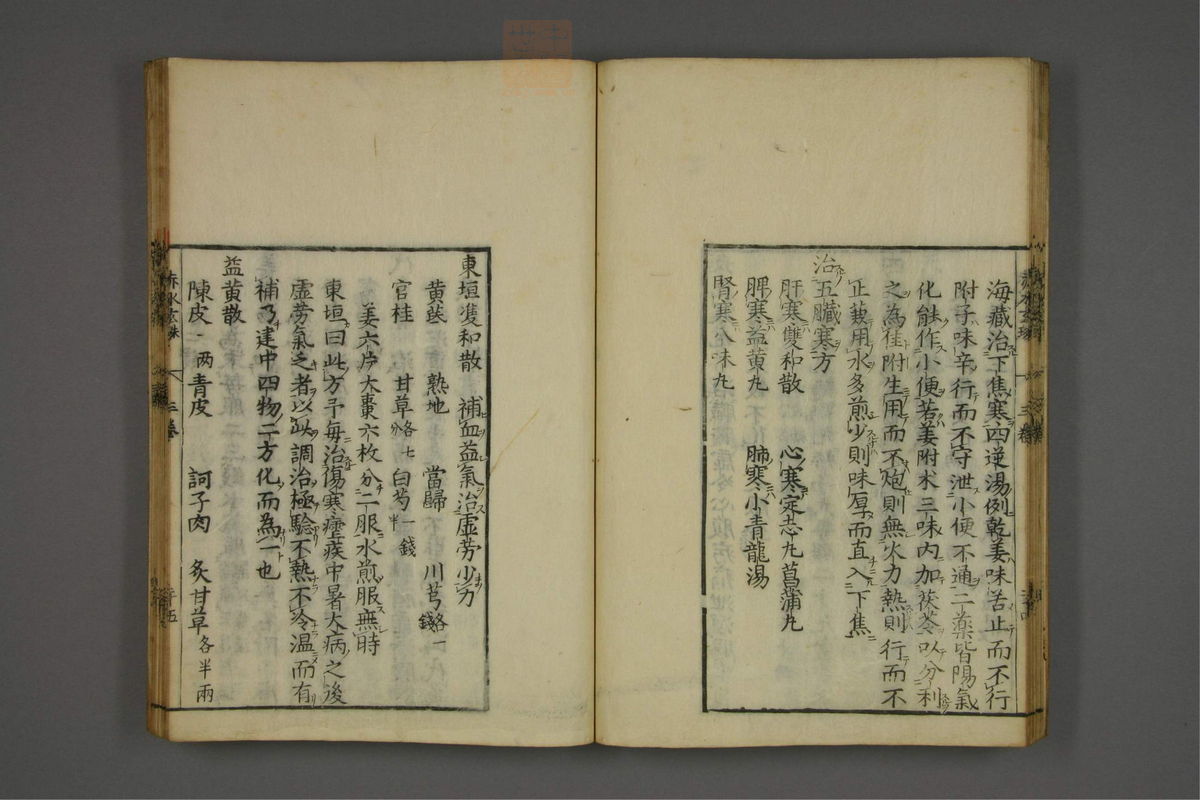 海藏治下焦寒四逆湯例乾姜味苦止而不行
附子味辛行而不守泄小便不通二藥皆陽氣
化能作小便若姜附术三味內加茯苓以分利
之為佳附生用而不炮則無火力熱則行而不
正蓺用水多煎少則味厚而直入下焦
治五臟寒方
肝寒雙和散 心寒定志丸菖蒲丸
脾寒益黃丸 肺寒小青龍湯
腎寒八味丸
東垣雙和散 補血益氣治虛劳少力
黃茋 熟地 當歸 川芎各一錢
官桂 甘草各七分 白芍一錢半
姜六片大棗六枚分二服水煎服無時
東垣曰此方予每治傷寒瘧疾中暑大病之後
虛劳氣乏者以此調治極驗不熱不冷温而有
補乃建中四物二方化而為一也
益黃散
陳皮一两 青皮 訶子肉 炙甘草各半兩
赤水玄珠 三卷